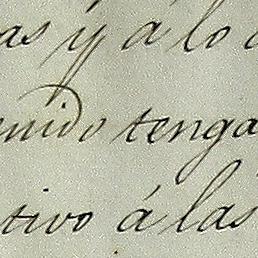 as y á lo
nido tenga
tivo á las